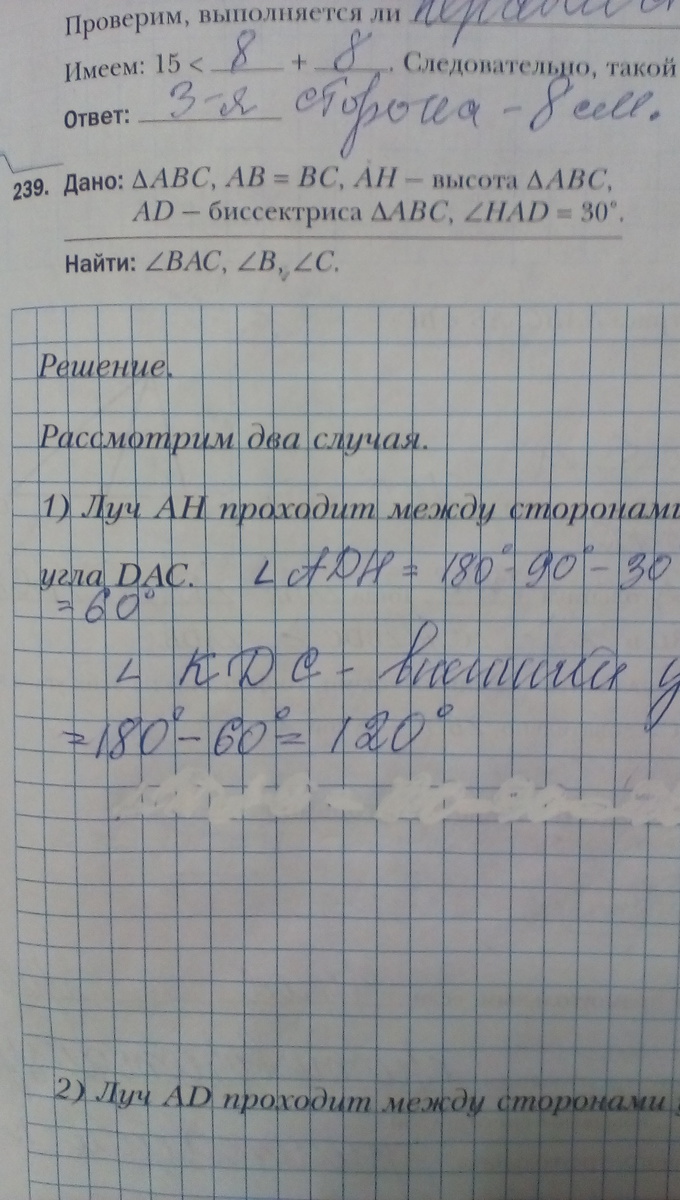 Проверим, выполняется ли
Имеем: 15 < 8 + 8. Следовательно, такой
Ответ: 3-я сторона - 8 см.
239. Дано: ΔABC, AB = BC, AH – высота ΔABC,
AD – биссектриса ΔABC, ∠HAD = 30°.
Найти: ∠BAC, ∠B, ∠C.
Решение.
Рассмотрим два случая.
1) Луч AH проходит между сторонами
угла DAC. ∠ADH = 180° - 90° - 30
= 60°
∠KDC - внешний у
= 180° - 60° = 120°
2) Луч AD проходит между сторонами